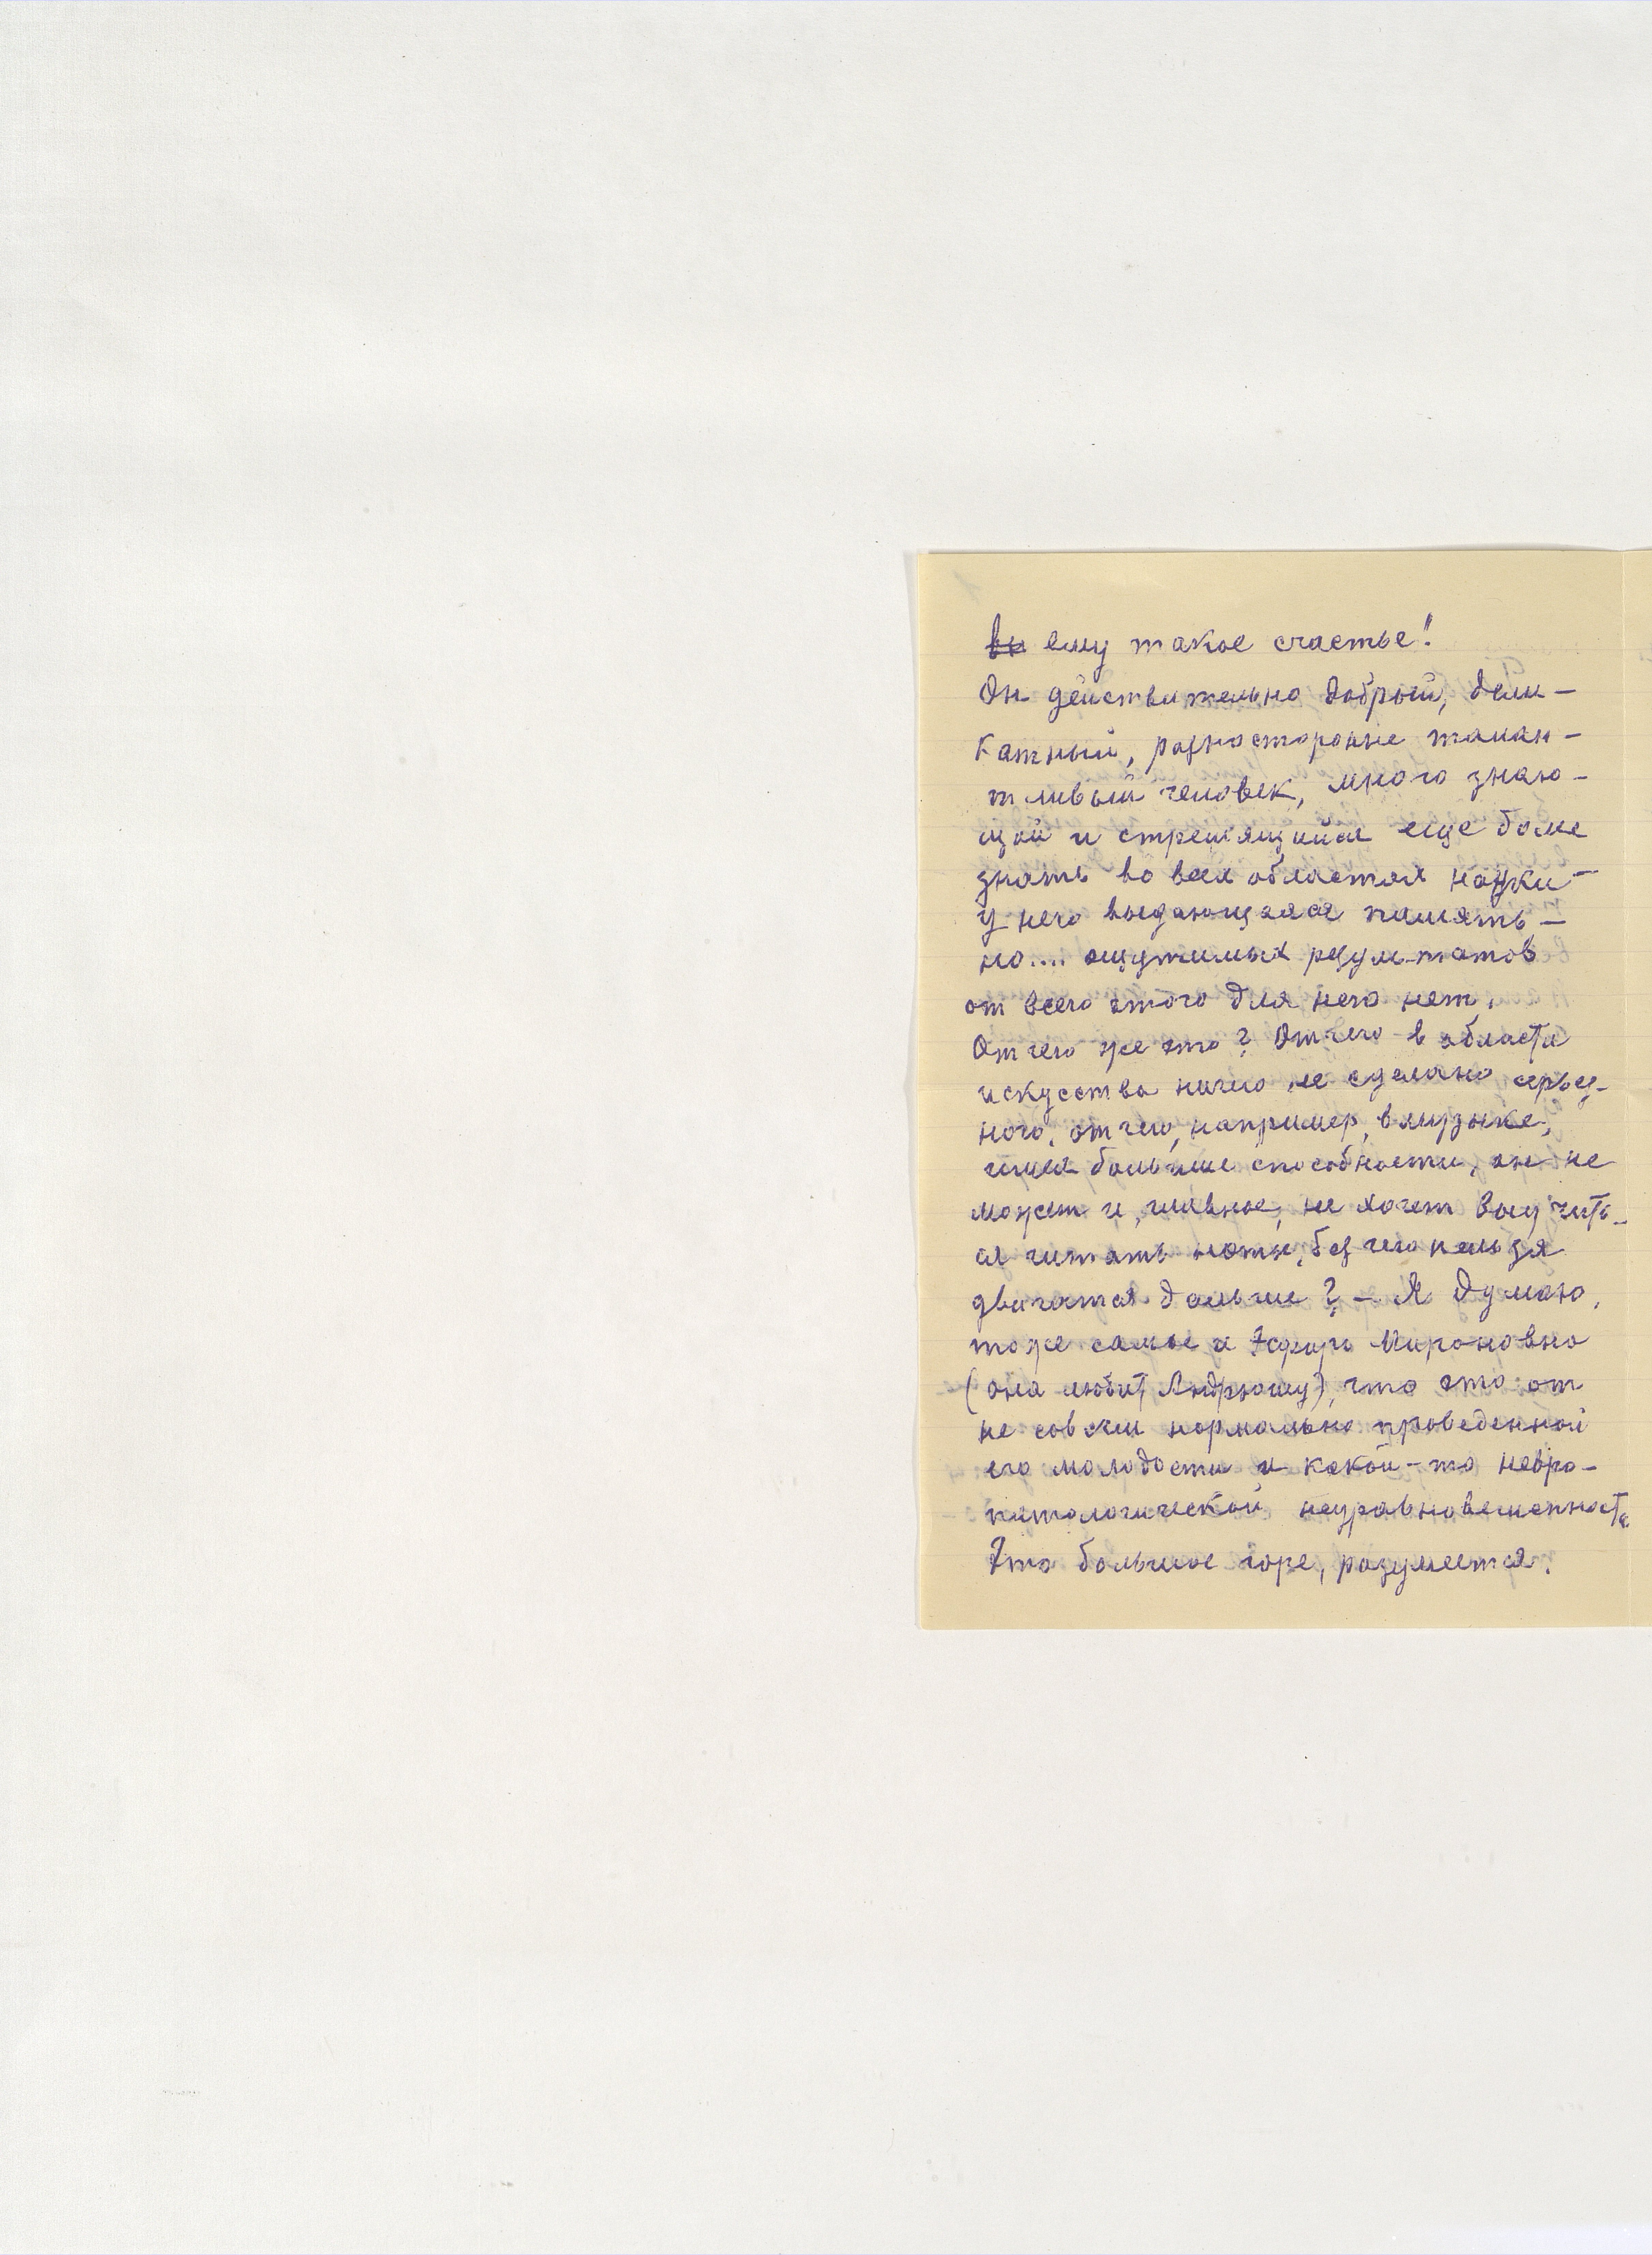 вы ему такое счастье!
Он действительно добрый, дели-
катный, разносторонне талан-
тливый человек, много знаю-
щий и стремящийся еще более
знать во всех областях науки –
у него выдающаяся память –
но.... ощутимых результатов
от всего этого для него нет.
Отчего же это? Отчего в области
искусства ничего не сделано серьез-
ного, отчего, например, в музыке,
имея большие способности, он не
может и, главное, не хочет выучить-
ся читать ноты, без чего нельзя
двигаться дальше? – Я думаю,
тоже самое и Эсфирь Мироновна
(она любит Андрюшу), что это от
не совсем нормально проведенной
его молодости и какой-то невро-
патологической неуравновешенности.
Это большое горе, разумеется.